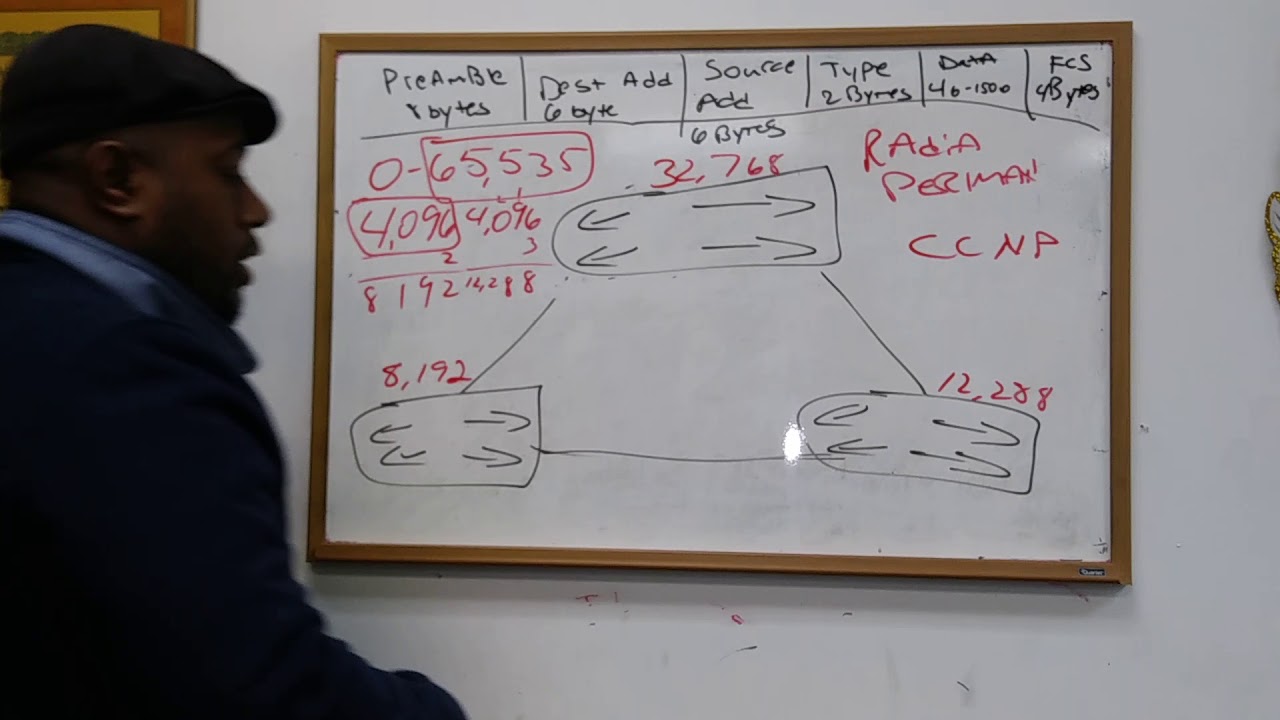 PreAmBle
8 bytes
Dest Add
6 byte
Source
Add
6 Bytes
Type
2 Bytes
Data
46-1500
FCS
4Bytes
0-65,535
4,096
2
8192
4,096
3
12,288
32,768
RAdiA
PERLMAN
CCNP
8,192
12,288
Quartet